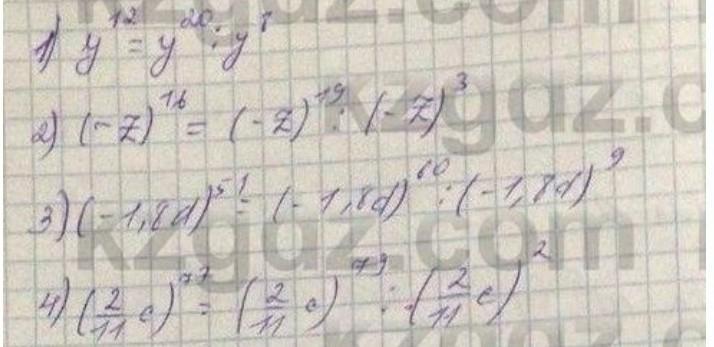 kzgdz.com
1) y¹² = y²⁰ : y⁸
2) (-z)¹⁶ = (-z)¹⁹ : (-z)³
kzgdz.c
3) (-1,8d)⁵¹ = (-1,8d)⁶⁰ : (-1,8d)⁹
kzgdz.com
4) (2/11 c)⁷⁷ = (2/11 c)⁷⁹ : (2/11 c)²